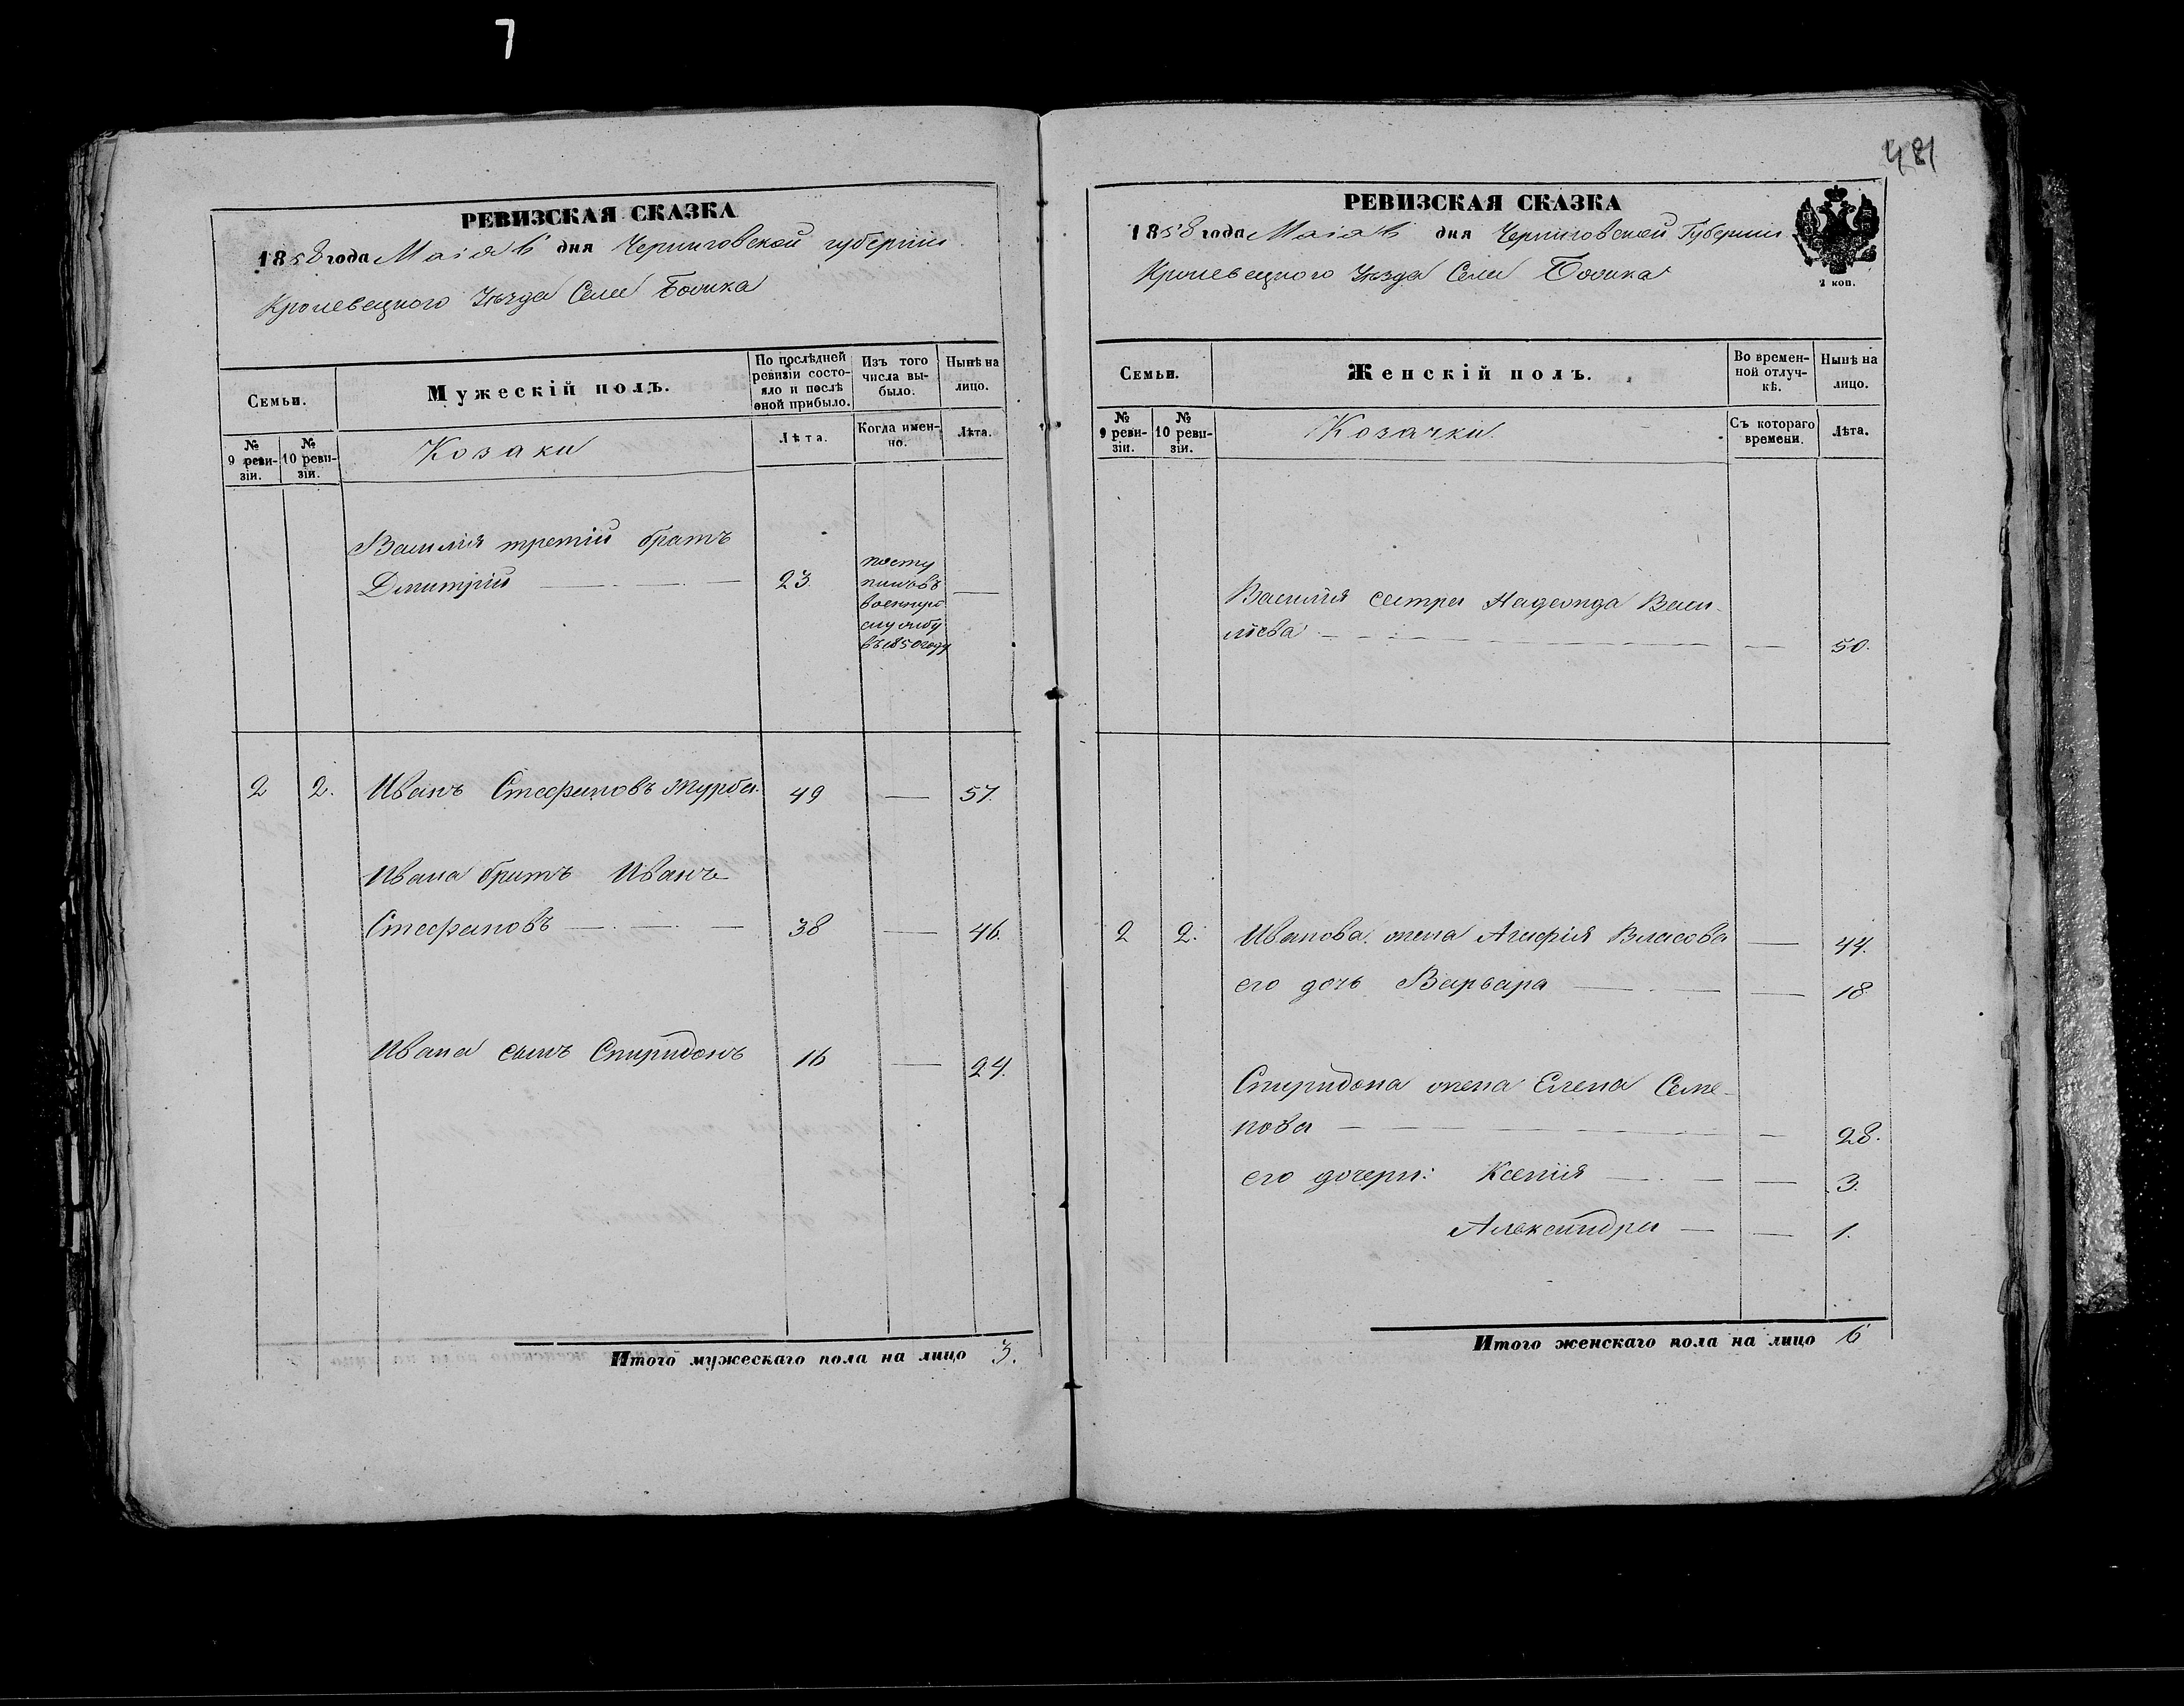 7
481
РЕВИЗСКАЯ СКАЗКА
1858 года Маія 6 дня Черниговской губерніи
Кролевецкого Уѣзда Села Божика
Семьи.
Мужескій полъ.
По послѣдней ревизіи состояло и послѣ оной прибыло.
Изъ того числа выбыло.
Нынѣ на лицо.
№ 9 ревизіи.
№ 10 ревизіи.
Козаки
Лѣта.
Когда именно.
Лѣта.
Василія третій братъ
Дмитрій — 23. —
посту
пилъ въ
военную
службу
въ 1850 году
2 2. Иванъ Стефановъ Журба. 49 — 57.
Ивана братъ Иванъ
Стефановъ — 38 — 46.
Ивана сынъ Спиридонъ 16 — 24.
Итого мужескаго пола на лицо 3.
РЕВИЗСКАЯ СКАЗКА
1858 года Маія 6 дня Черниговской Губерніи
Кролевецкого Уѣзда Села Божика
2 коп.
Семьи.
Женскій полъ.
Во временной отлучкѣ.
Нынѣ на лицо.
№ 9 ревизіи.
№ 10 ревизіи.
Козачки.
Съ котораго времени.
Лѣта.
Василія сестра Надежда Васи-
ліева — — 50.
2 2. Иванова жена Агафія Власова — 44.
его дочь Варвара — — 18.
Спиридона жена Елена Семе-
нова — — 28.
его дочери: Ксенія — — 3.
Александра — — 1.
Итого женскаго пола на лицо 6